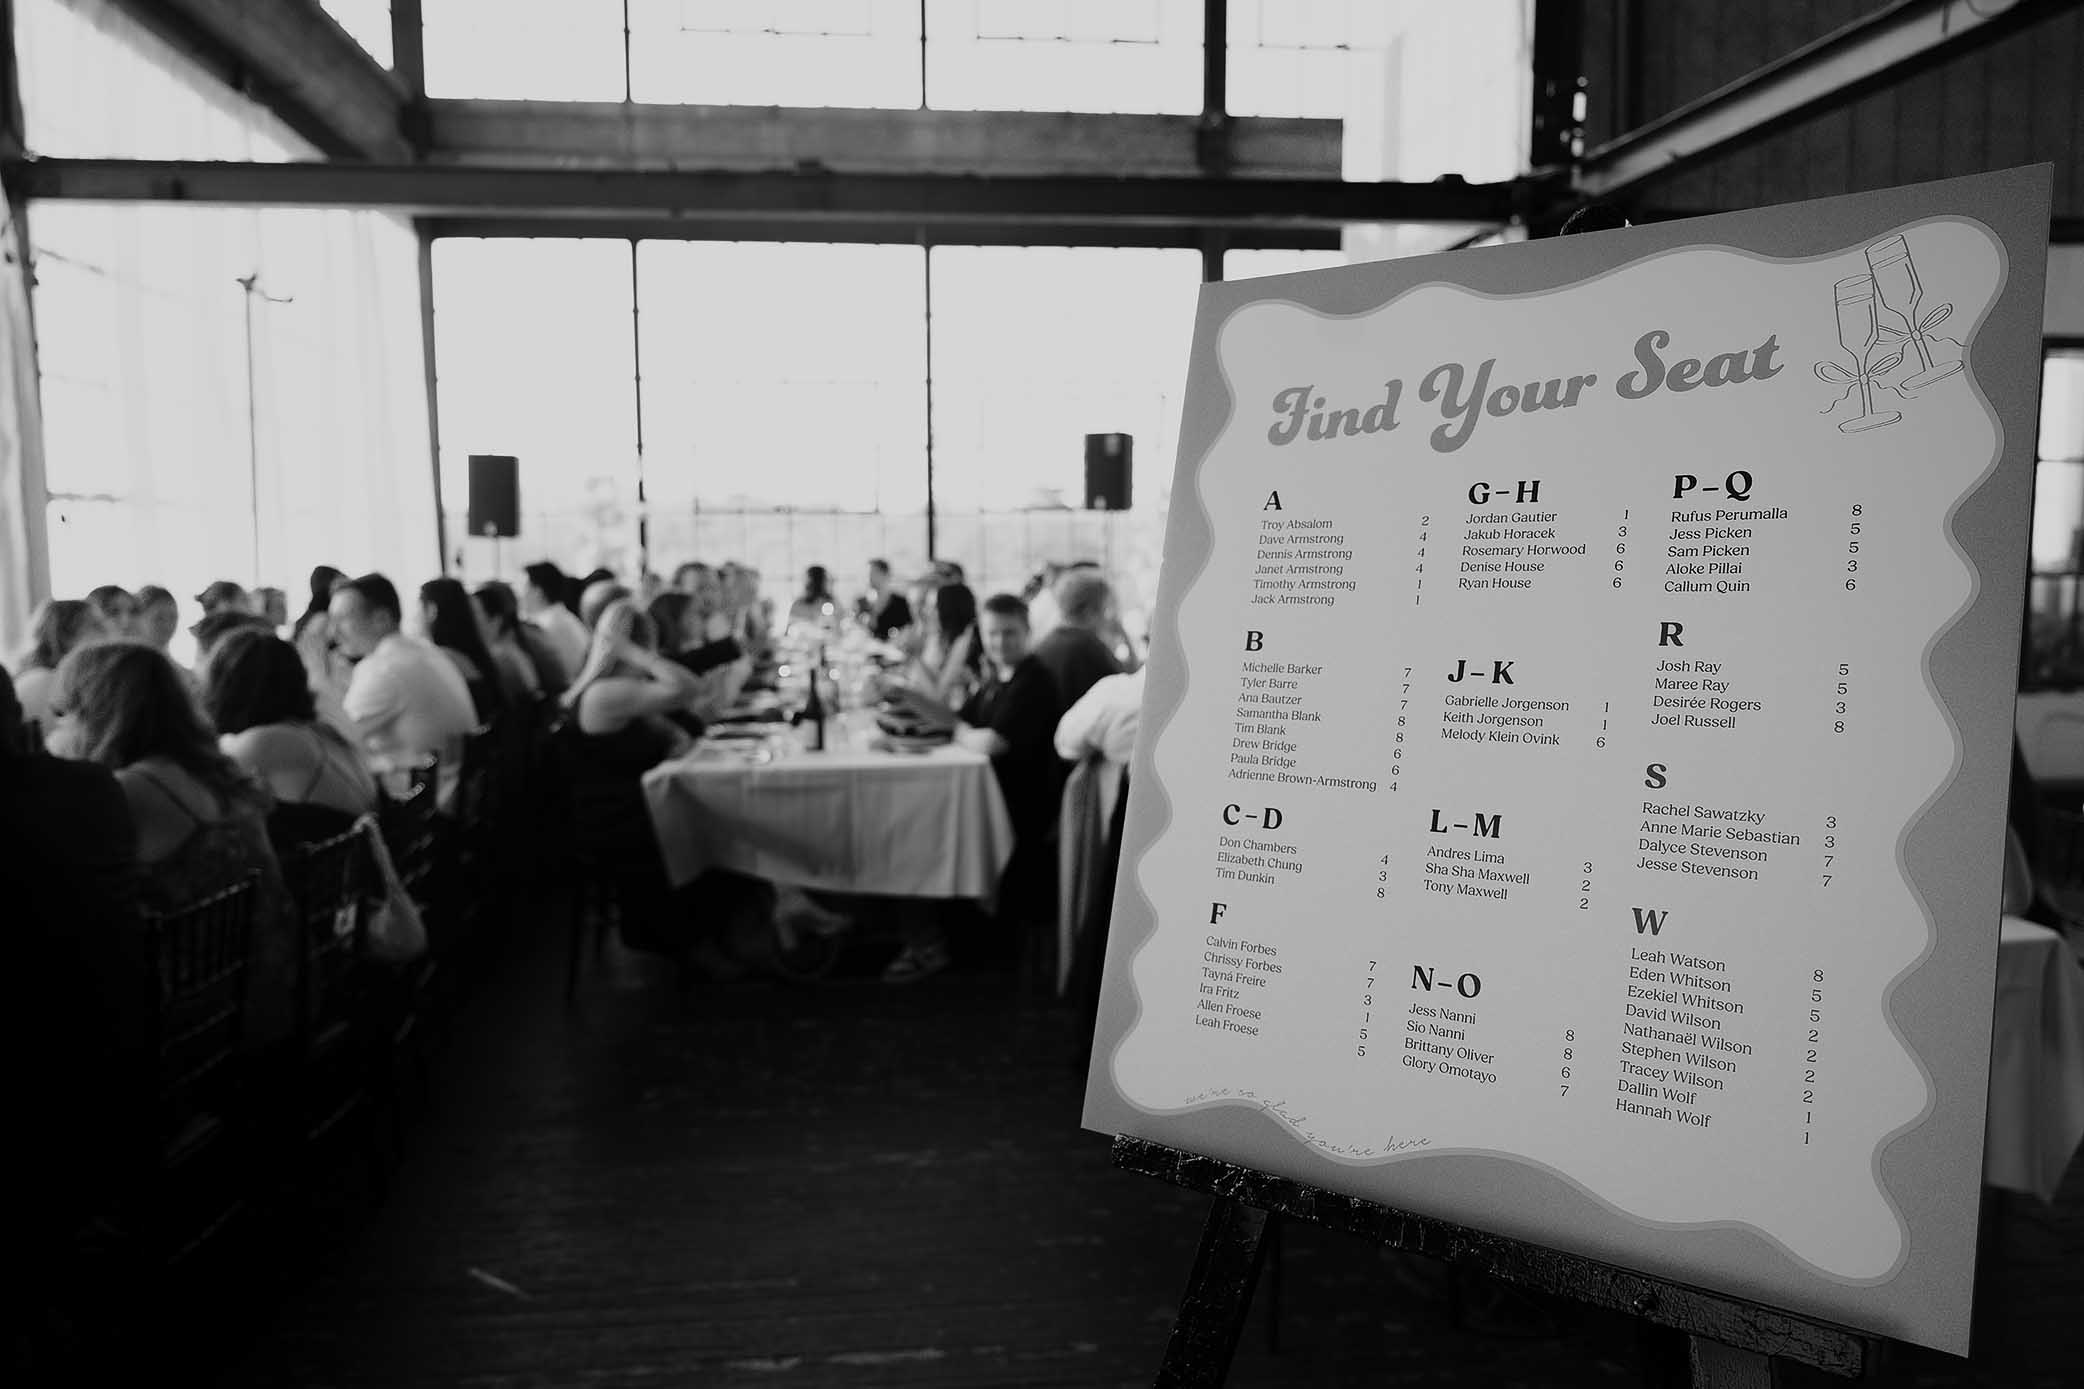 Find Your Seat
A
Troy Absalom 2
Dave Armstrong 4
Dennis Armstrong 4
Janet Armstrong 4
Timothy Armstrong 1
Jack Armstrong 1
B
Michelle Barker 7
Tyler Barre 7
Ana Bautzer 7
Samantha Blank 8
Tim Blank 8
Drew Bridge 6
Paula Bridge 6
Adrienne Brown-Armstrong 4
C-D
Don Chambers 4
Elizabeth Chung 3
Tim Dunkin 8
F
Calvin Forbes 7
Chrissy Forbes 7
Tayná Freire 3
Ira Fritz 1
Allen Froese 5
Leah Froese 5
G-H
Jordan Gautier 1
Jakub Horacek 3
Rosemary Horwood 6
Denise House 6
Ryan House 6
J-K
Gabrielle Jorgenson 1
Keith Jorgenson 1
Melody Klein Ovink 6
L-M
Andres Lima 3
Sha Sha Maxwell 2
Tony Maxwell 2
N-O
Jess Nanni 8
Sio Nanni 8
Brittany Oliver 6
Glory Omotayo 7
P-Q
Rufus Perumalla 8
Jess Picken 5
Sam Picken 5
Aloke Pillai 3
Callum Quin 6
R
Josh Ray 5
Maree Ray 5
Desirée Rogers 3
Joel Russell 8
S
Rachel Sawatzky 3
Anne Marie Sebastian 3
Dalyce Stevenson 7
Jesse Stevenson 7
W
Leah Watson 8
Eden Whitson 5
Ezekiel Whitson 5
David Wilson 2
Nathanaël Wilson 2
Stephen Wilson 2
Tracey Wilson 2
Dallin Wolf 1
Hannah Wolf 1
we're so glad you're here